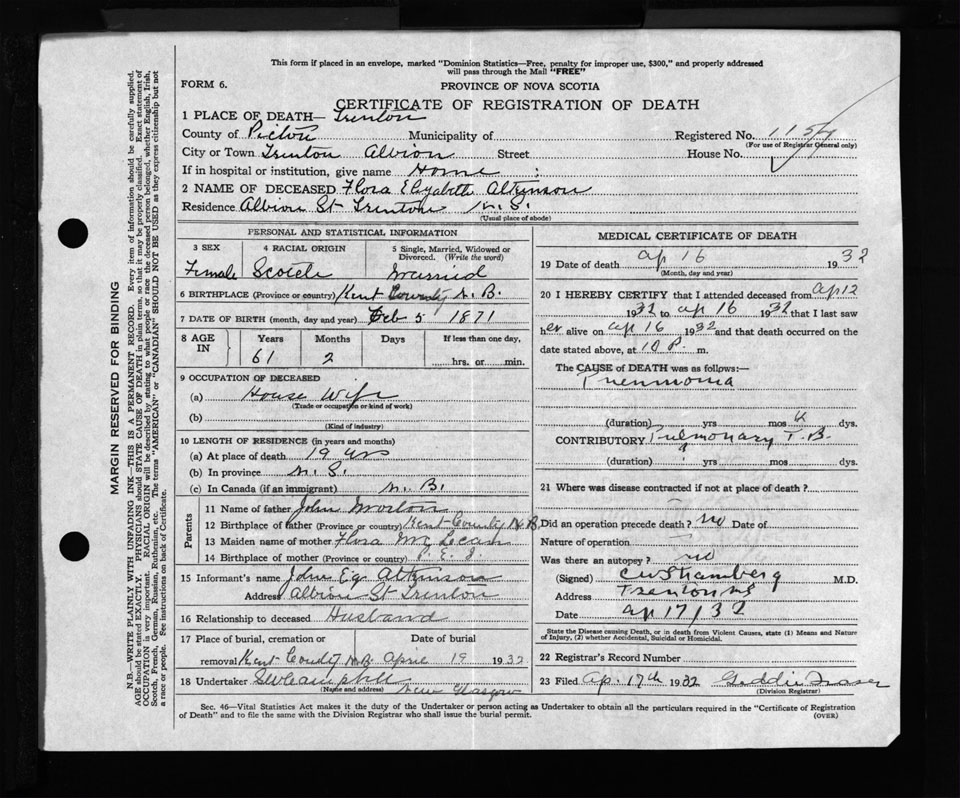 This form if placed in an envelope, marked "Dominion Statistics—Free, penalty for improper use, $300," and properly addressed
will pass through the Mail "FREE"
FORM 6.
PROVINCE OF NOVA SCOTIA
CERTIFICATE OF REGISTRATION OF DEATH
1 PLACE OF DEATH— Trenton
County of Pictou Municipality of Registered No.
(For use of Registrar General only)
City or Town Trenton Albion Street House No.
If in hospital or institution, give name Home
2 NAME OF DECEASED Flora Elizabeth Atkinson
Residence Albion St Trenton N.S.
(Usual place of abode)
PERSONAL AND STATISTICAL INFORMATION
3 SEX 4 RACIAL ORIGIN 5 Single, Married, Widowed or
Divorced. (Write the word)
Female Scotch Married
6 BIRTHPLACE (Province or country) Kent County N.B.
7 DATE OF BIRTH (month, day and year) Feb 5 1871
8 AGE IN Years Months Days If less than one day,
61 2 hrs. or min.
9 OCCUPATION OF DECEASED
(a) House Wife
(Trade or occupation or kind of work)
(b)
(Kind of industry)
10 LENGTH OF RESIDENCE (in years and months)
(a) At place of death 19 yrs
(b) In province N.S.
(c) In Canada (if an immigrant) N.B.
Parents
11 Name of father John Morton
12 Birthplace of father (Province or country) Kent County N.B.
13 Maiden name of mother Flora McLean
14 Birthplace of mother (Province or country) P.E.I.
15 Informant's name John Atkinson
Address Albion St Trenton
16 Relationship to deceased Husband
17 Place of burial, cremation or Date of burial
removal Kent County N.B. April 19 1932
18 Undertaker New Glasgow
(Name and address)
MEDICAL CERTIFICATE OF DEATH
19 Date of death ap 16 1932
(Month, day and year)
20 I HEREBY CERTIFY that I attended deceased from ap 12
1932 to ap 16 1932 that I last saw
her alive on ap 16 1932 and that death occurred on
date stated above, at 10 P. m.
The CAUSE of DEATH was as follows:—
Pneumonia
(duration) yrs mos 4 dys.
CONTRIBUTORY Pulmonary T.B.
(duration) yrs mos. dys.
21 Where was disease contracted if not at place of death?
Did an operation precede death? no Date of
Nature of operation
Was there an autopsy? no
(Signed) M.D.
Address Trenton NS
Date ap 17/32
State the Disease causing Death, or in death from Violent Causes, state (1) Means and Nature
of Injury, (2) whether Accidental, Suicidal or Homicidal.
22 Registrar's Record Number
23 Filed Ap. 17th 1932 Geddie Fraser
(Division Registrar)
Sec. 46—Vital Statistics Act makes it the duty of the Undertaker or person acting as Undertaker to obtain all the particulars required in the "Certificate of Registration
of Death" and to file the same with the Division Registrar who shall issue the burial permit.
(OVER)
MARGIN RESERVED FOR BINDING
N.B.—WRITE PLAINLY WITH UNFADING INK—THIS IS A PERMANENT RECORD. Every item of information should be carefully supplied.
AGE should be stated EXACTLY. PHYSICIANS should STATE CAUSE OF DEATH in plain terms, so that it may be properly classified. Exact statement of
OCCUPATION is very important. RACIAL ORIGIN will be described by stating to what people or race the deceased person belonged, whether English, Irish,
Scotch, French, German, Russian, Ruthenian, etc. The terms "AMERICAN" or "CANADIAN" SHOULD NOT BE USED as they express citizenship but not
a race or people. See instructions on back of Certificate.